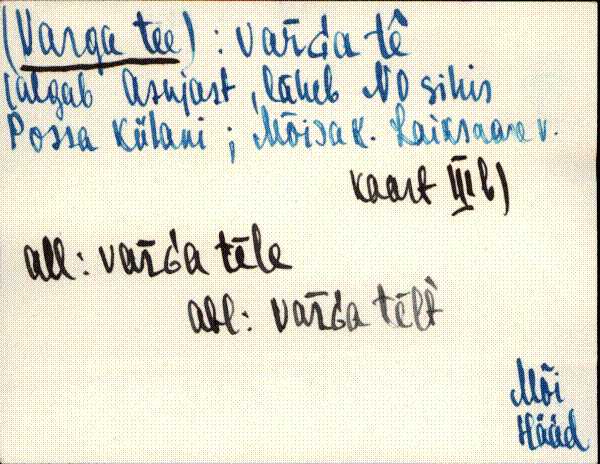 (Varga tee) : varG̀a tē̂
(algab Asujast, läheb NO sihis
Possa külani ; Mõisak. Laiksaare v.
kaart III b)
all: varG̀a tēle
abl: varG̀a tēlt̀
Mõi
Hääd